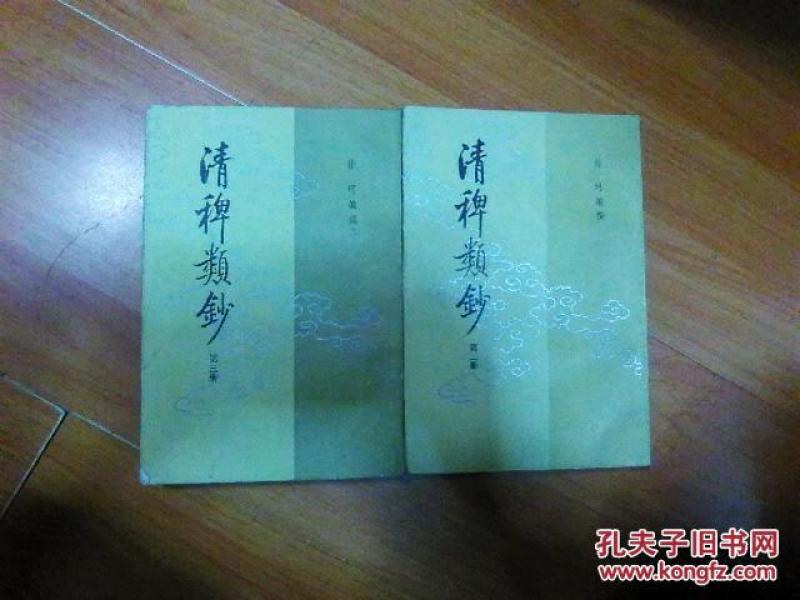 清稗類鈔
第三册
徐珂編撰
清稗類鈔
第二册
徐珂編撰
孔夫子旧书网
www.kongfz.com